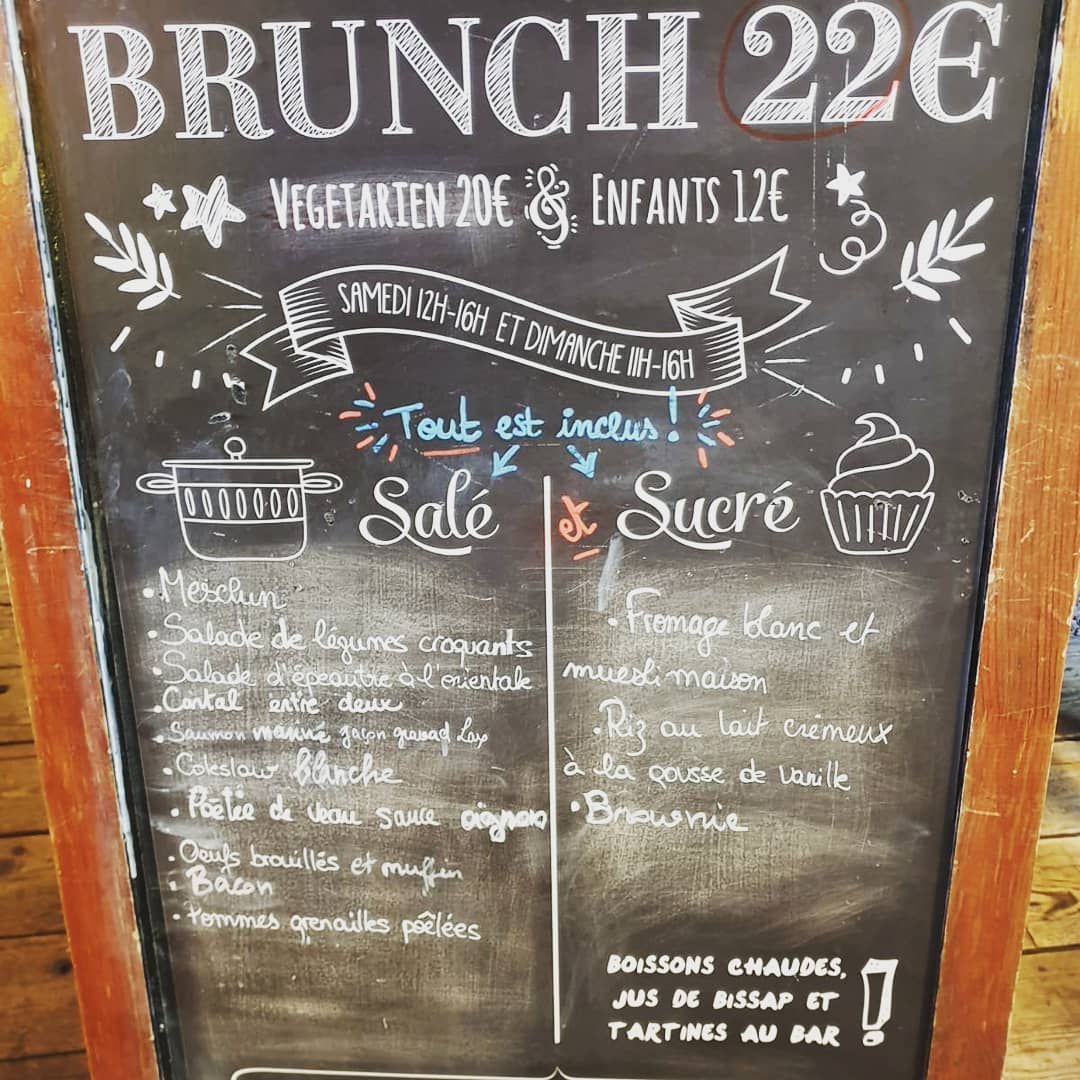 BRUNCH 22€
VEGETARIEN 20€ & ENFANTS 12€
SAMEDI 12H-16H ET DIMANCHE 11H-16H
Tout est inclus !
Salé et Sucré
• Mesclun
• Salade de légumes croquants
• Salade d'épeautre à l'orientale
• Cantal entre deux
• Saumon mariné façon gravad Lax
• Coleslaw blanche
• Poêlée de veau sauce oignon
• Oeufs brouillés et muffin
• Bacon
• Pommes grenailles poêlées
• Fromage blanc et
muesli maison
• Riz au lait crémeux
à la gousse de vanille
• Brownie
BOISSONS CHAUDES,
JUS DE BISSAP ET
TARTINES AU BAR !